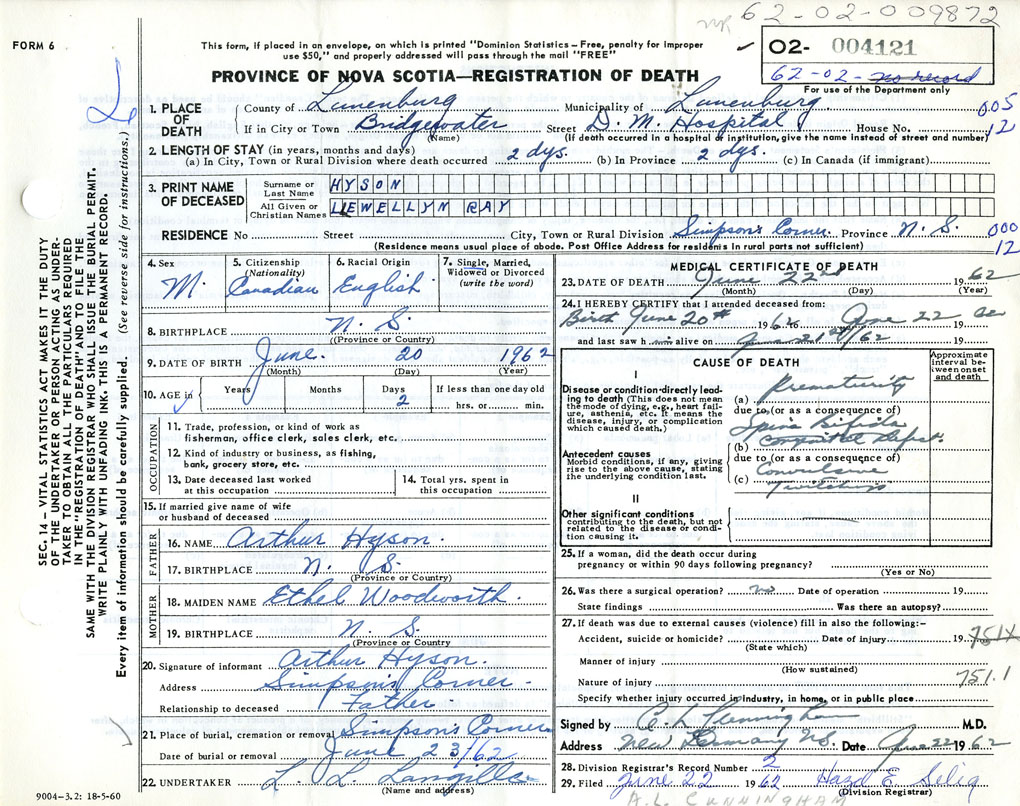 62-02-009872
FORM 6
This form, if placed in an envelope, on which is printed "Dominion Statistics – Free, penalty for improper
use $50," and properly addressed will pass through the mail "FREE"
✓ O2- 004121
62-02- no record
For use of the Department only
PROVINCE OF NOVA SCOTIA—REGISTRATION OF DEATH
1. PLACE OF DEATH County of Lunenburg Municipality of Lunenburg 005
If in City or Town Bridgewater Street D. M. Hospital House No. 12
(Name) (If death occurred in a hospital or institution, give the name instead of street and number)
2. LENGTH OF STAY (in years, months and days)
(a) In City, Town or Rural Division where death occurred 2 dys. (b) In Province 2 dys. (c) In Canada (if immigrant)
3. PRINT NAME OF DECEASED
Surname or Last Name HYSON
All Given or Christian Names LLEWELLYN RAY
RESIDENCE No Street City, Town or Rural Division Simpson's Corner Province N. S. 000
(Residence means usual place of abode. Post Office Address for residents in rural parts not sufficient) 12
4. Sex M.
5. Citizenship (Nationality) Canadian
6. Racial Origin English
7. Single, Married, Widowed or Divorced (write the word)
8. BIRTHPLACE N. S.
(Province or Country)
9. DATE OF BIRTH June 20 1962
(Month) (Day) (Year)
10. AGE in Years Months Days 2 If less than one day old
hrs. or min.
OCCUPATION
11. Trade, profession, or kind of work as
fisherman, office clerk, sales clerk, etc.
12. Kind of industry or business, as fishing,
bank, grocery store, etc.
13. Date deceased last worked
at this occupation
14. Total yrs. spent in
this occupation
15. If married give name of wife
or husband of deceased
FATHER
16. NAME Arthur Hyson.
17. BIRTHPLACE N. S.
(Province or Country)
MOTHER
18. MAIDEN NAME Ethel Woodworth.
19. BIRTHPLACE N. S.
(Province or Country)
20. Signature of informant Arthur Hyson.
Address Simpson's Corner.
Relationship to deceased Father.
21. Place of burial, cremation or removal Simpson's Corner
Date of burial or removal June 23/62
22. UNDERTAKER L. L. Langille
(Name and address)
MEDICAL CERTIFICATE OF DEATH
23. DATE OF DEATH June 22nd 1962
(Month) (Day) (Year)
24. I HEREBY CERTIFY that I attended deceased from:
Birth June 20th 1962 to June 22 19
and last saw h alive on June 21st/62 19
CAUSE OF DEATH
Approximate interval between onset and death
I
Disease or condition directly leading to death (This does not mean the mode of dying, e.g., heart failure, asthenia, etc. It means the disease, injury, or complication which caused death.)
(a) Prematurity
due to (or as a consequence of)
Spina Bifida
(b) Congenital Defect.
Antecedent causes
Morbid conditions, if any, giving rise to the above cause, stating the underlying condition last.
due to (or as a consequence of)
Convulsive
(c) Twitchings
II
Other significant conditions
contributing to the death, but not related to the disease or condition causing it.
25. If a woman, did the death occur during
pregnancy or within 90 days following pregnancy?
(Yes or No)
26. Was there a surgical operation? no Date of operation 19
State findings Was there an autopsy?
27. If death was due to external causes (violence) fill in also the following:–
Accident, suicide or homicide? Date of injury 19
(State which)
Manner of injury
(How sustained)
Nature of injury 751.1
Specify whether injury occurred in industry, in home, or in public place
Signed by M.D.
Address New Germany NS. Date June 22 1962
28. Division Registrar's Record Number 2
29. Filed June 22 1962 Hazel E. Selig
(Division Registrar)
A.L. CUNNINGHAM
SEC. 14 – VITAL STATISTICS ACT MAKES IT THE DUTY
OF THE UNDERTAKER OR PERSON ACTING AS UNDER-
TAKER TO OBTAIN ALL THE PARTICULARS REQUIRED
IN THE "REGISTRATION OF DEATH" AND TO FILE THE
SAME WITH THE DIVISION REGISTRAR WHO SHALL ISSUE THE BURIAL PERMIT.
WRITE PLAINLY WITH UNFADING INK. THIS IS A PERMANENT RECORD.
Every item of information should be carefully supplied. (See reverse side for instructions.)
9004-3.2: 18-5-60